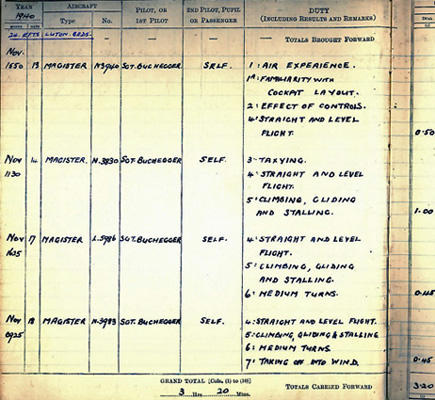 YEAR AIRCRAFT PILOT, OR 2ND PILOT, PUPIL DUTY
1940 Type No. 1ST PILOT OR PASSENGER (INCLUDING RESULTS AND REMARKS)
MONTH DATE
24 EFTS LUTON. BEDS. — — — TOTALS BROUGHT FORWARD
Nov.
1550 13 MAGISTER SGT. BUCHEGGER SELF. 1: AIR EXPERIENCE.
1A: FAMILIARITY WITH
COCKPIT LAYOUT.
2: EFFECT OF CONTROLS.
4: STRAIGHT AND LEVEL
FLIGHT. 0.50
Nov 14 MAGISTER. N.3830 SGT. BUCHEGGER SELF. 3- TAXYING.
1130 4: STRAIGHT AND LEVEL
FLIGHT.
5: CLIMBING, GLIDING
AND STALLING. 1.00
Nov 17 MAGISTER L.5986 SGT. BUCHEGGER SELF. 4: STRAIGHT AND LEVEL
1625 FLIGHT.
5: CLIMBING, GLIDING
AND STALLING.
6: MEDIUM TURNS. 0.45
Nov 18 MAGISTER N.3983 SGT. BUCHEGGER SELF. 4: STRAIGHT AND LEVEL FLIGHT.
0925 5: CLIMBING, GLIDING & STALLING
6: MEDIUM TURNS.
7: TAKING OFF INTO WIND. 0.45
GRAND TOTAL [Cols. (1) to (10)]
3 Hrs. 20 Mins. TOTALS CARRIED FORWARD 3.20